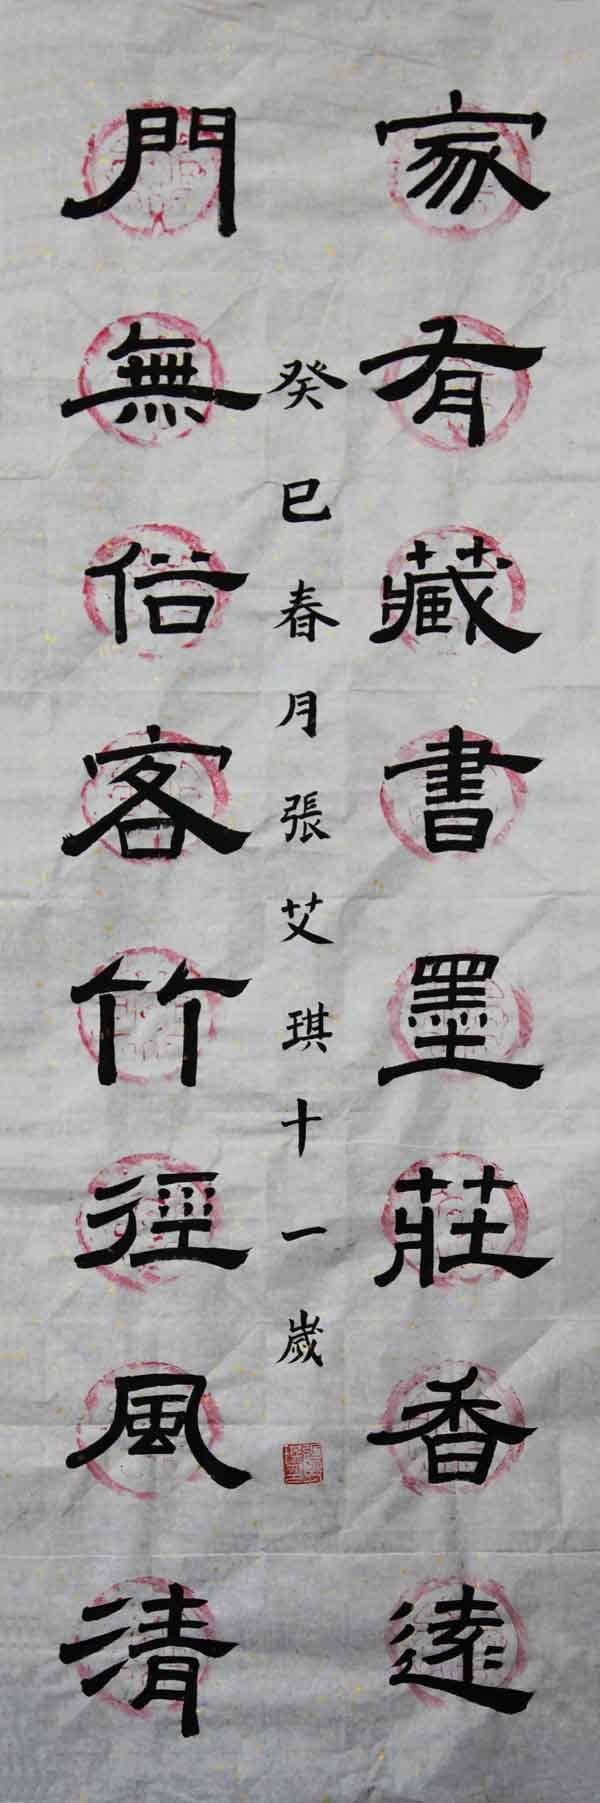 家有藏書墨莊香遠
門無俗客竹徑風清
癸巳春月張艾琪十一歲